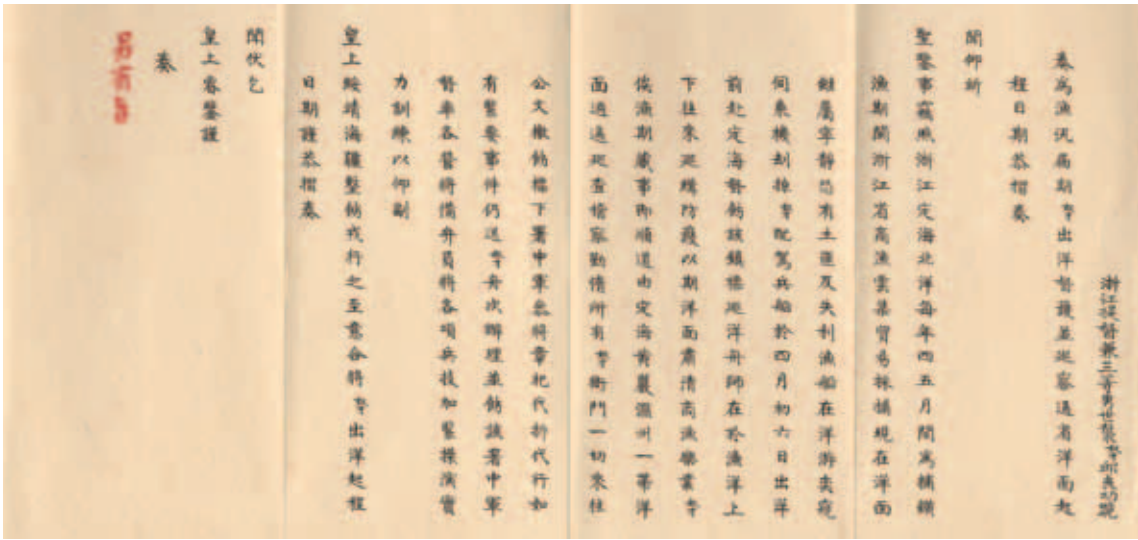 浙江提督兼三等男世襲奴才邱良功跪
奏為漁汛屆期奴才出洋督護並巡察通省洋面起
程日期恭摺奏
聞仰祈
聖鑒事竊照浙江定海北洋每年四五月間為捕
漁期閩浙江省商漁雲集貿易採捕現在洋面
雖屬寧靜恐有土匪及失利漁船在洋游奕窺
伺乘機刦掠奴才配駕兵船於四月初六日出洋
前赴定海督飭該鎮標巡洋舟師在於漁洋上
下往來巡緝防護以期洋面肅清商漁樂業奴才
俟漁期蕆事即順道由定海黃巖溫州一帶洋
面週遍巡查稽察勤惰所有奴才衙門一切來往
公文檄飭標下署中軍參將章杞代拆代行如
有緊要事件仍送奴才舟次辦理並飭該署中軍
督率各營將備弁員將各項兵技加緊操演實
力訓練以仰副
皇上綏靖海疆整飭戎行之至意合將奴才出洋起程
日期謹恭摺奏
聞伏乞
皇上睿鑒謹
奏
另有旨